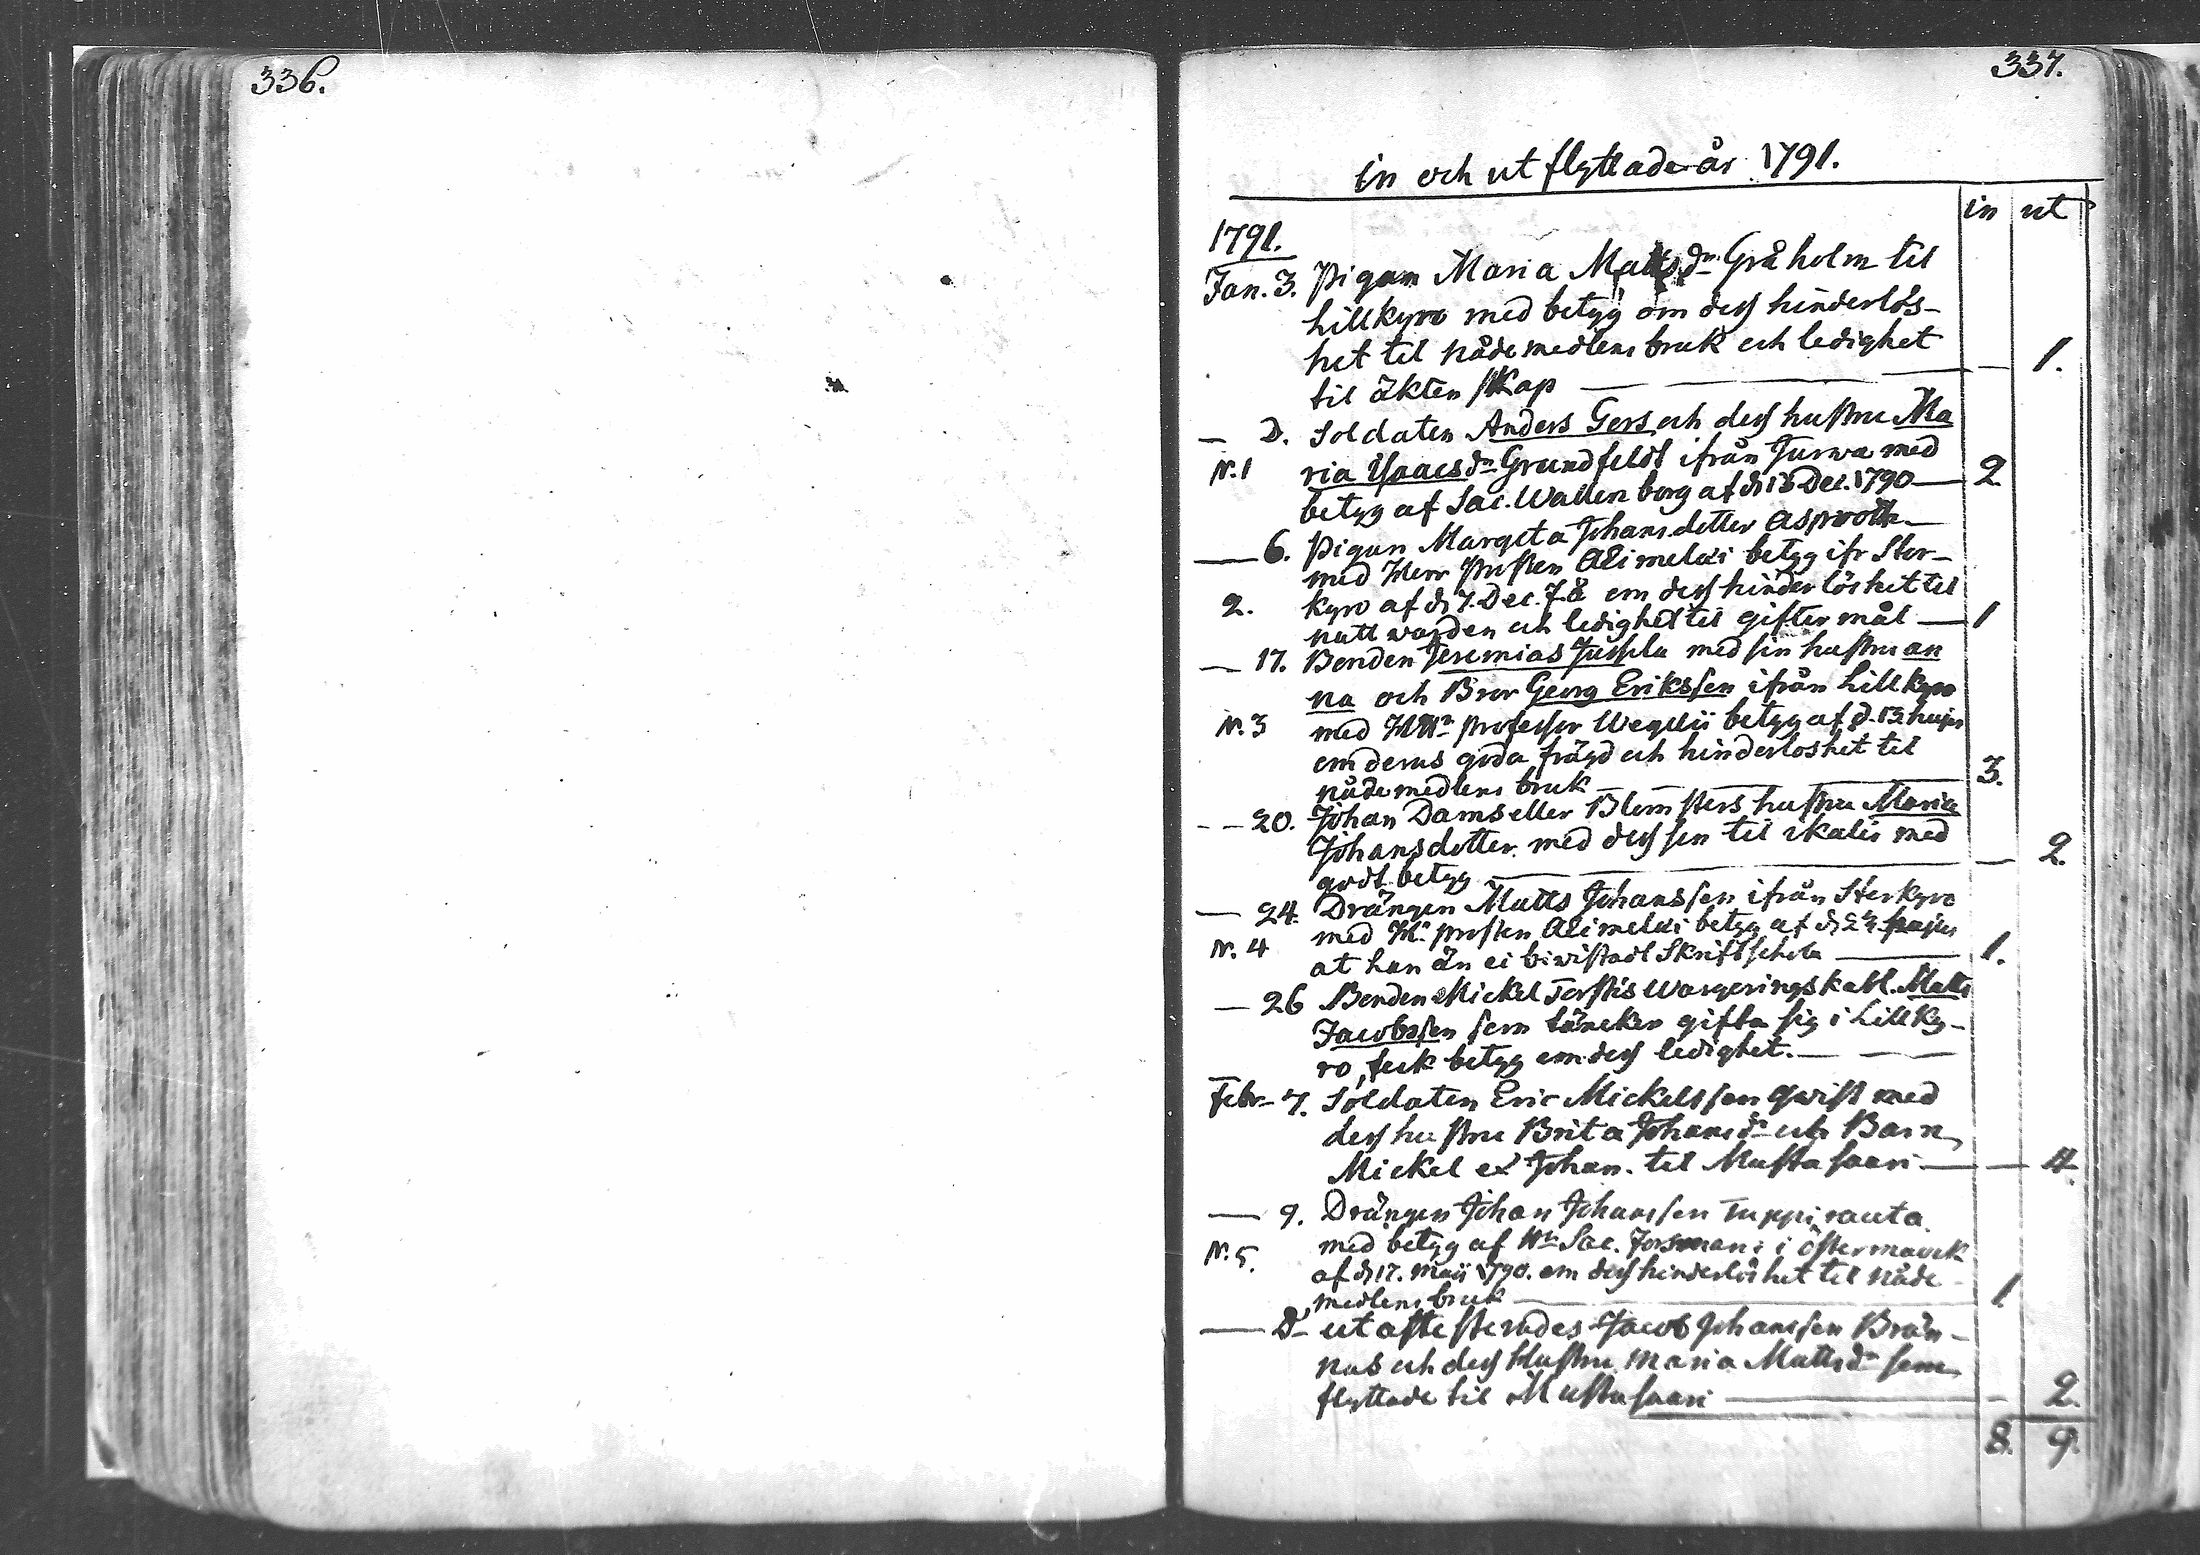 336.
337.
in och ut flyttade år 1791.
in ut
1791.
Jan. 3. Pigan Maria Mattsdr Gråholm til
Lillkyro med betyg om dess hinderlös-
het til nådemedlens bruk och ledighet
til äktenskap — 1.
— D. Soldaten Anders Gers och dess hustru Ma
N. 1 ria Isaacsdr Grundfeldt ifrån Jurwa med
betyg af Sac. Wallenborg af d. 16 Dec. 1790 — 2
— 6. Pigan Margeta Johansdotter Asproth
med Herr Prosten Alimelæi betyg ifr Stor-
2. kyro af d. 7. Dec. f. å om dess hinderlöshet til
nattwarden och ledighet til giftermål — 1
— 17. Bonden Jeremias Jussila med sin hustru an
na och Bror Georg Eriksson ifrån Lillkyro
N. 3 med HHr Professor Wegelii betyg af d. 13 hujus
om deras goda frägd och hinderloshet til
nådemedlens bruk — 3.
— 20. Johan Dams eller Blomsters hustru Maria
Johansdotter med dess son til Kalis med
godt betyg — 2.
— 24. Drängen Matts Johansson ifrån Storkyro
N. 4 med Hr Prosten Alimelæi betyg af d. 22 hujus
at han än ei biwistadt Skriftschola — 1.
— 26 Bonden Mickel Torstis Wargerings karl Matts
Jacobsson som täncker gifta sig i Lillky-
ro, feck betyg om dess ledighet. —
Febr. 7. Soldaten Eric Mickelsson Qwist med
dess hustru Brita Johansdr och Barn
Mickel et Johan til Mustasaari — 4.
— 9. Drängen Johan Johansson Tuppirauta
N. 5. med betyg af Hr Sac. Forsman i Östermarck
af d. 17. Maii 1790. om dess hinderlöshet til nåde-
medlens bruk — 1
— D— utattesterades Jacob Johansson Brän-
nus och dess Hustru Maria Mattsdr som
flyttade til Mustasaari — 2.
8. 9.